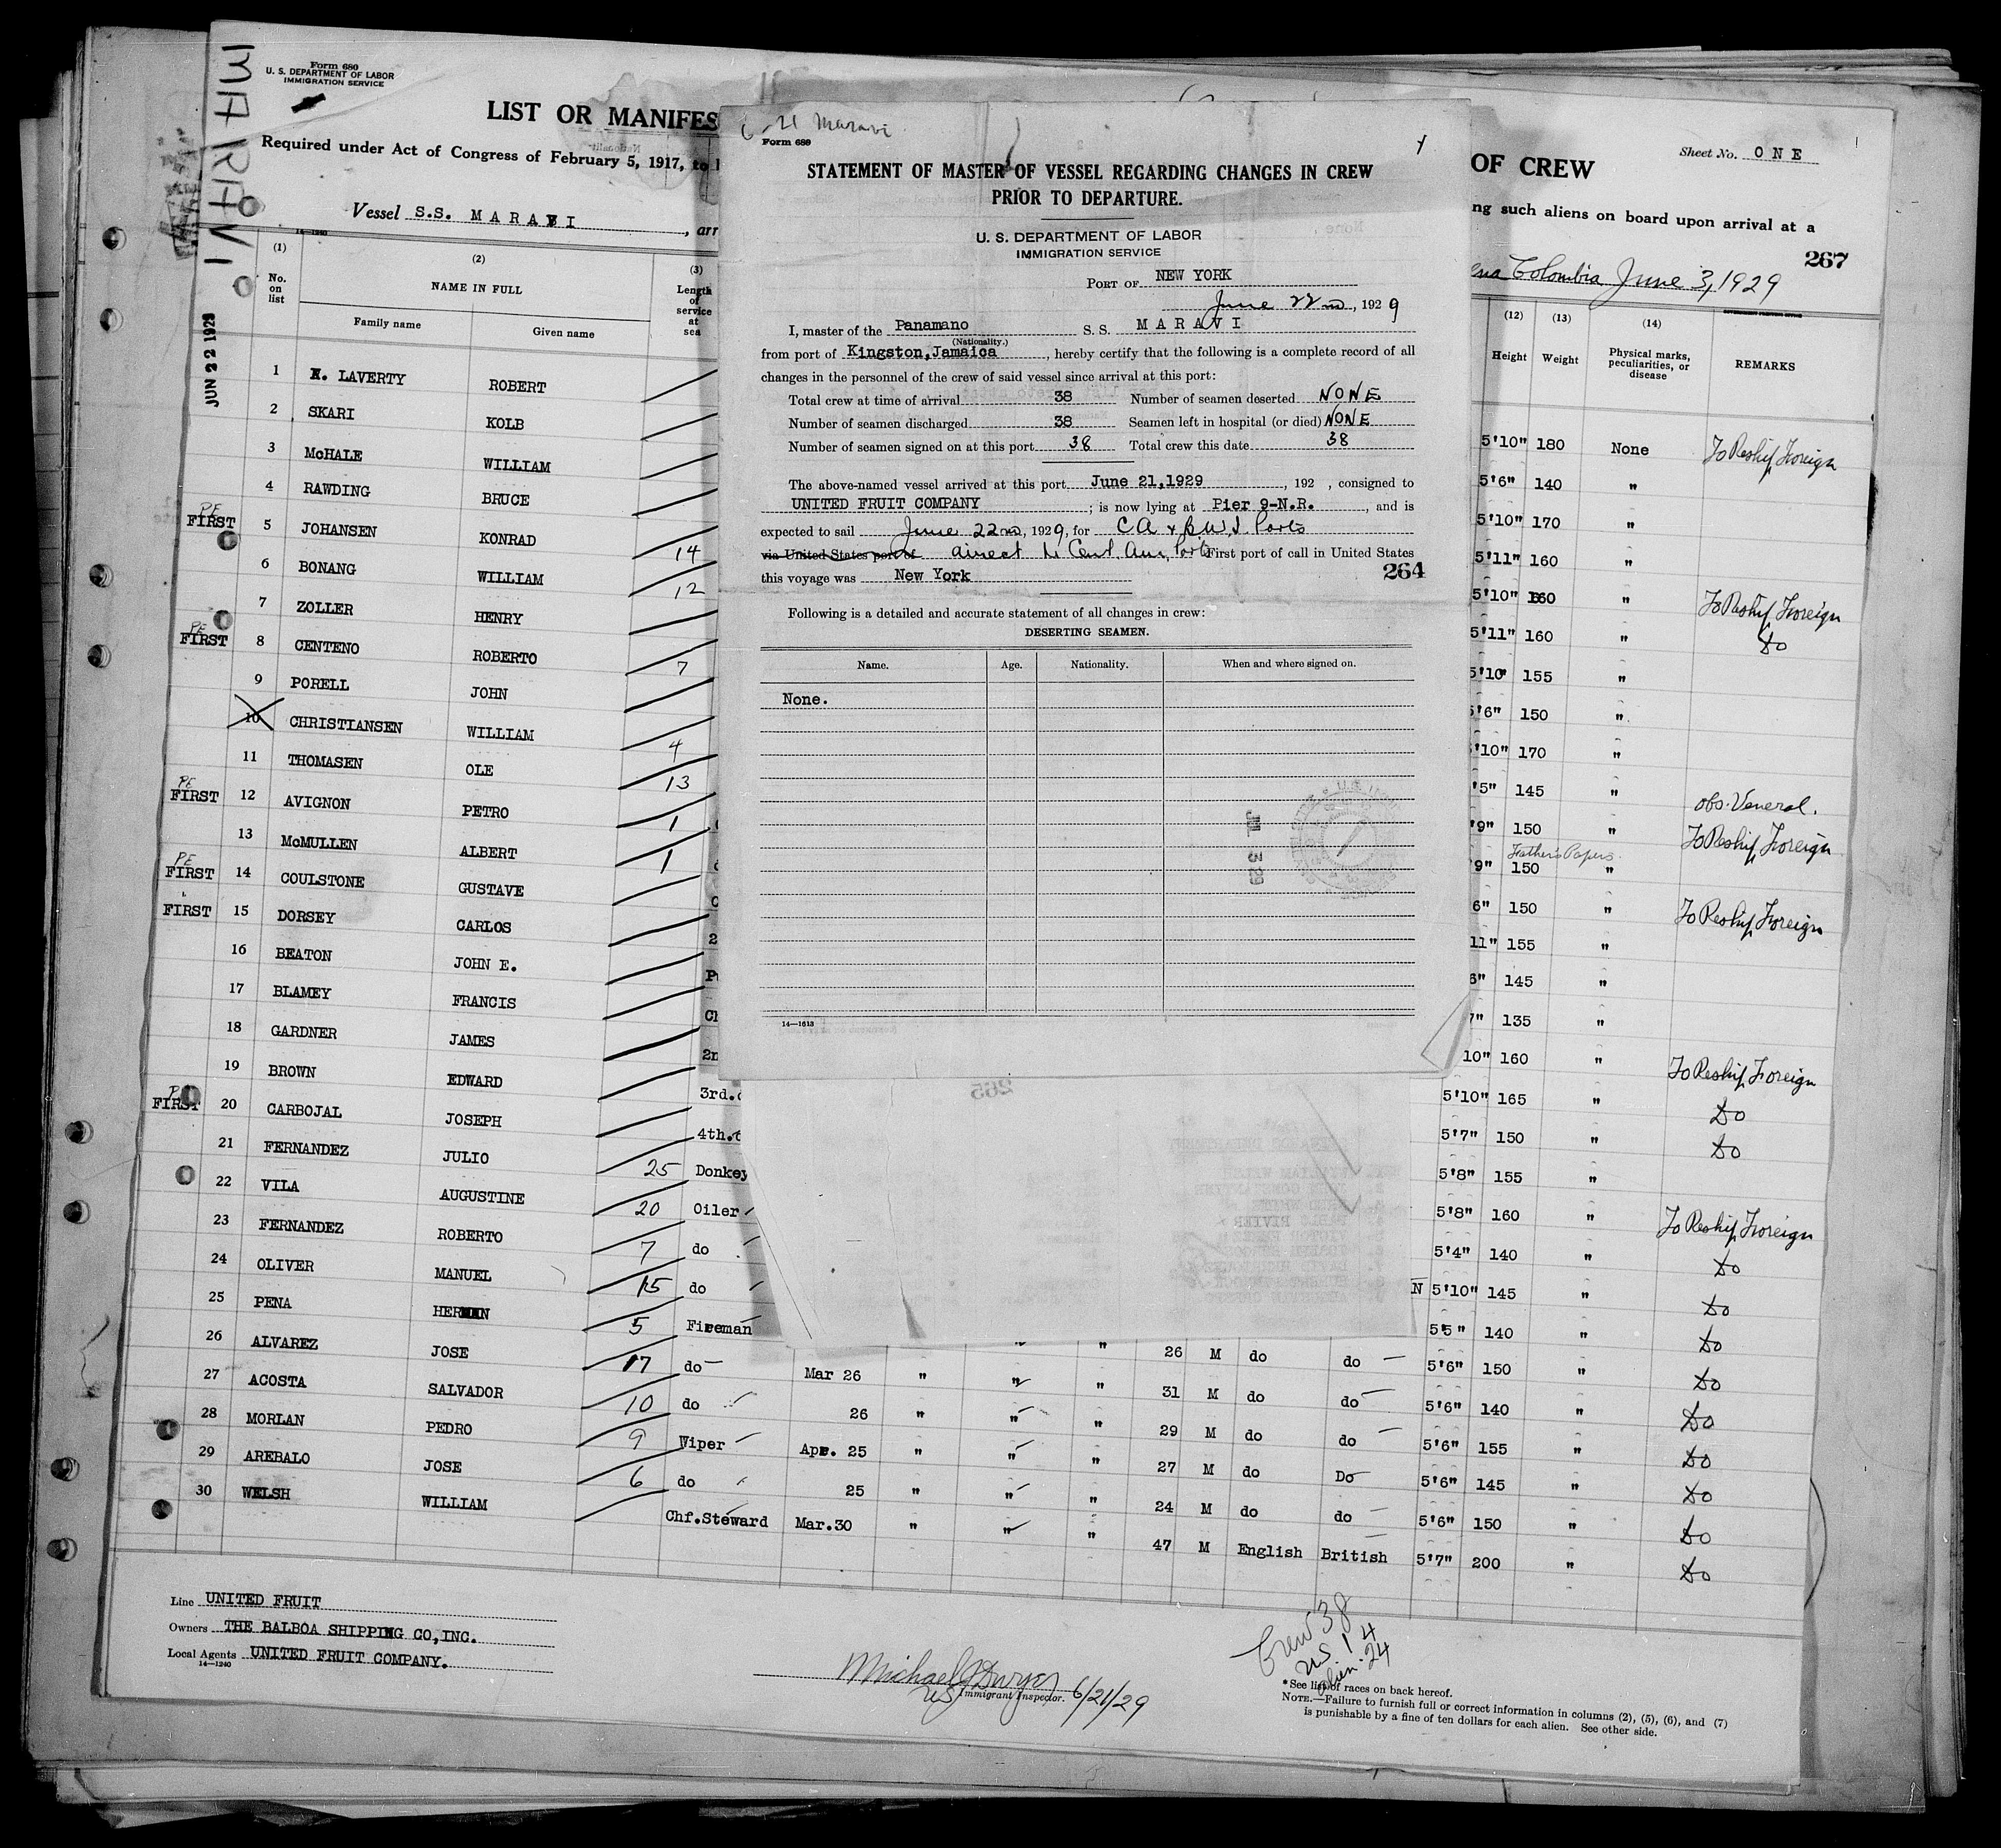 MARAVI
JUN 22 1929
Form 680
U. S. DEPARTMENT OF LABOR
IMMIGRATION SERVICE
LIST OR MANIFES
Required under Act of Congress of February 5, 1917, to
Vessel S.S. MARAVI, arr
14—1240
(1) (2) (3)
No. on list
NAME IN FULL
Length of service at sea
Family name Given name
1 LAVERTY ROBERT
2 SKARI KOLB
3 McHALE WILLIAM
4 RAWDING BRUCE
PE FIRST 5 JOHANSEN KONRAD 14
6 BONANG WILLIAM 12
7 ZOLLER HENRY
PE FIRST 8 CENTENO ROBERTO 7
9 PORELL JOHN
10 CHRISTIANSEN WILLIAM 4
11 THOMASEN OLE 13
PE FIRST 12 AVIGNON PETRO 1
13 McMULLEN ALBERT 1
PE FIRST 14 COULSTONE GUSTAVE
FIRST 15 DORSEY CARLOS 2
16 BEATON JOHN E.
17 BLAMEY FRANCIS Ch
18 GARDNER JAMES 2n
19 BROWN EDWARD 3rd.
FIRST 20 CARBOJAL JOSEPH 4th.
21 FERNANDEZ JULIO 25 Donkey
22 VILA AUGUSTINE 20 Oiler
23 FERNANDEZ ROBERTO 7 do
24 OLIVER MANUEL 15 do
25 PENA HERMAN 5 Fireman
26 ALVAREZ JOSE 17 do Mar 26 " " " 26 M do do
27 ACOSTA SALVADOR 10 do 26 " " " 31 M do do
28 MORLAN PEDRO 9 Wiper Apr. 25 " " " 29 M do do
29 AREBALO JOSE 6 do 25 " " " 27 M do Do
30 WELSH WILLIAM Chf.Steward Mar.30 " " " 24 M do do
47 M English British
Line UNITED FRUIT
Owners THE BALBOA SHIPPING CO,INC.
Local Agents UNITED FRUIT COMPANY.
14—1240
Michael J Dwyer
US Immigrant Inspector. 6/21/29
Crew 38
US 14
alien 24
*See list of races on back hereof.
NOTE.—Failure to furnish full or correct information in columns (2), (5), (6), and (7)
is punishable by a fine of ten dollars for each alien. See other side.
6-21 Maravi
Form 689
STATEMENT OF MASTER OF VESSEL REGARDING CHANGES IN CREW
PRIOR TO DEPARTURE.
U. S. DEPARTMENT OF LABOR
IMMIGRATION SERVICE
PORT OF NEW YORK
June 22nd, 1929
I, master of the Panamano S. S. MARAVI
(Nationality.)
from port of Kingston,Jamaica, hereby certify that the following is a complete record of all
changes in the personnel of the crew of said vessel since arrival at this port:
Total crew at time of arrival 38 Number of seamen deserted NONE
Number of seamen discharged 38 Seamen left in hospital (or died) NONE
Number of seamen signed on at this port 38 Total crew this date 38
The above-named vessel arrived at this port June 21,1929, 192 , consigned to
UNITED FRUIT COMPANY; is now lying at Pier 9-N.R., and is
expected to sail June 22nd, 1929, for CA & B.W.I. Ports
via United States port of direct to Cent. Am. Ports First port of call in United States
this voyage was New York 264
Following is a detailed and accurate statement of all changes in crew:
DESERTING SEAMEN.
Name. Age. Nationality. When and where signed on.
None.
JUL 3 29
14—1613
265
OF CREW
Sheet No. ONE
ng such aliens on board upon arrival at a
267
ena Colombia June 3, 1929
(12) (13) (14)
Height Weight Physical marks, peculiarities, or disease REMARKS
5'10" 180 None To Reship Foreign
5'6" 140 "
5'10" 170 "
5'11" 160 "
5'10 160 " To Reship Foreign
5'11" 160 " Do
5'10" 155 "
5'6" 150 "
'10" 170 "
'5" 145 " obs. Veneral.
'9" 150 " To Reship Foreign
Father's Papers
'9" 150 "
6" 150 " To Reship Foreign
11" 155 "
6" 145 "
7" 135 "
10" 160 " To Reship Foreign
5'10" 165 " Do
5'7" 150 " Do
5'8" 155 "
5'8" 160 " To Reship Foreign
5'4" 140 " Do
N 5'10" 145 " Do
5'5" 140 " Do
5'6" 150 " Do
5'6" 140 " Do
5'6" 155 " Do
5'6" 145 " Do
5'6" 150 " Do
5'7" 200 " Do